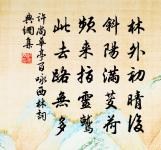 林外初晴後
斜陽滿芰荷
頻來指靈鷲
此去路無多
許尚華亭百詠西林詞